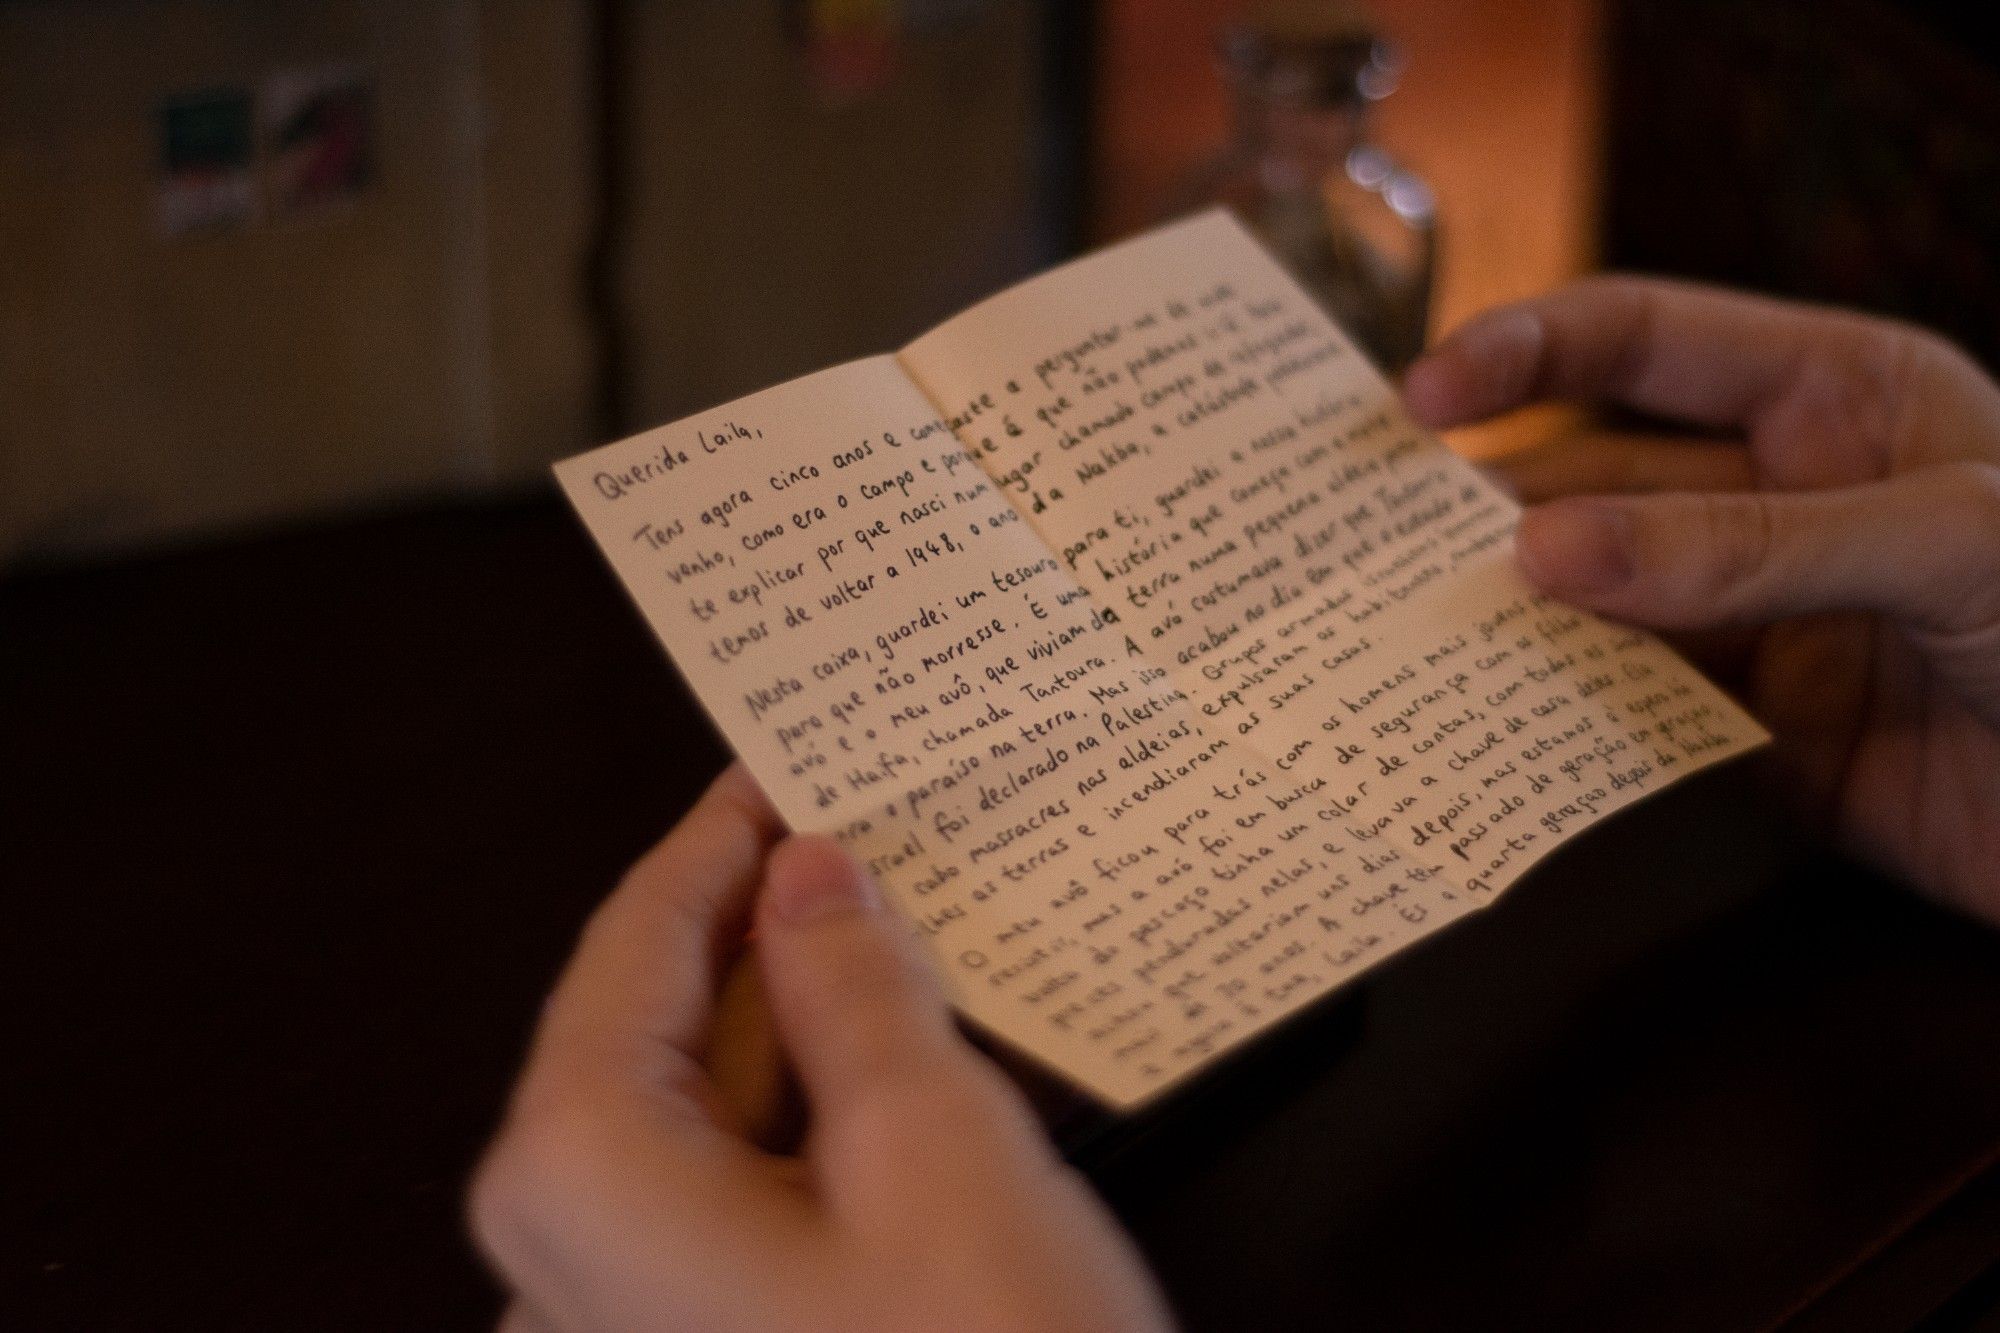 Querida Laila,
Tens agora cinco anos e começaste a perguntar-me de onde
venho, como era o campo e porque é que não podemos ir lá.
te explicar por que nasci num lugar chamado campo de refugiados
temos de voltar a 1948, o ano da Nakba, a catástrofe palestina
Nesta caixa, guardei um tesouro para ti, guardei a nossa história
para que não morresse. É uma história que começa com a minha
avó e o meu avô, que viviam da terra numa pequena aldeia perto
de Haifa, chamada Tantoura. A avó costumava dizer que Tantoura
era o paraíso na terra. Mas isso acabou no dia em que o estado de
Israel foi declarado na Palestina. Grupos armados
cabo massacres nas aldeias, expulsaram os habitantes,
lhes as terras e incendiaram as suas casas.
O meu avô ficou para trás com os homens mais jovens
mas a avó foi em busca de segurança com os filhos
volta do pescoço tinha um colar de contas, com todas as
penduradas nelas, e levava a chave de casa
que voltariam uns dias depois, mas estamos à espera há
mais de 70 anos. A chave tem passado de geração em geração,
e agora é tua, Laila. És a quarta geração depois da Nakba.